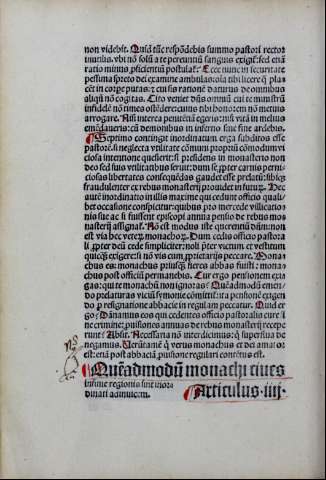 non videbit. Quid tūc respōdebis summo pastori rector
inutilis. vbi nō solū a te pereuntiū sanguis exigit: sed etiā
ratio minus proficientiū postulat. Ecce nunc in securitate
pessima spreto dei examine ambulas: sola tibi licere q pla-
cēt in corpe putas. et cuius rationē daturus de omnibus
aliqñ nō cogitas. Cito veniet dñs omniū cui te ministrū
infidelē nō times ostēdere: cuius tibi honorē nō metuis
arrogare. Nisi interea penitētiā egeris: nisi vitā in melius
emēdaueris: cū demonibus in inferno siue fine ardebis.
Septimo contingit inordinatum erga subditos esse
pastorē. si neglecta vtilitate cōmuni propriū cōmodum vi
ciosa intentione quesierit: si presidens in monasterio non
deo sed suis vtilitatibus seruit: dum se propter carnis perni-
ciosas libertates
fraudulenter ex rebus monasterij prouidet in futurum. Hec
autē inordinatio in illis maxime qui cedunt officio qualibet
occasione conspicitur: quibus pro mercede villicatio
nis sue ac si fuissent episcopi annua pensio de rebus mo-
nasterij assignat. Nō est modus iste querentiū dñm: non
est via hec vere monachorum. Dum cedis officio pastora
li propter deū cede simpliciter: noli propter victum et vestitum
quicquam exigere: si nō vis cum proprietarijs peccare. Mona-
chus es: monachus priusquam fieres abbas fuisti: monachus
post officiū permanebis. Cur ergo pensionem exi
gas: qui te monachū non ignoras? Quēadmodū emen-
do prelaturas viciū symonie cōmittit: ita pensionē exigen
do pro resignatione abbacie in regulam peccatur. Quid er-
go? Damamus eos qui cedentes officio pastoralis cure si
ne crimine: pensiones annuas de rebus monasterij recepe
runt? Absit. Necessaria nō interdicimus: que superflua de
negamus. Verūtamē qui verus monachus et dei amator
est: etiā post abbaciā pensione regulari contētus est.
Quēadmodū monachi ciues
infime regionis sunt inor-
dinati adinuicem.
Articulus .iiij.